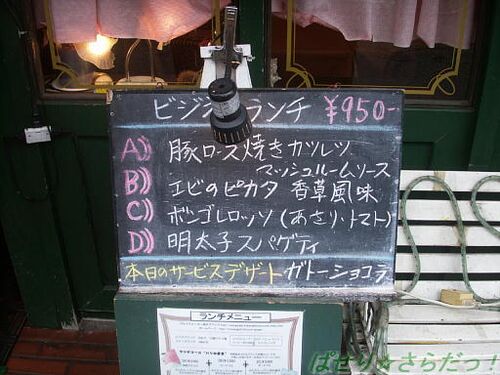 ビジネスランチ ¥950-
A) 豚ロース焼きカツレツ
マッシュルームソース
B) エビのピカタ 香草風味
C) ボンゴレロッソ(あさり・トマト)
D) 明太子スパゲティ
本日のサービスデザート ガトーショコラ
ランチメニュー
ぱせり☆さらだっ!